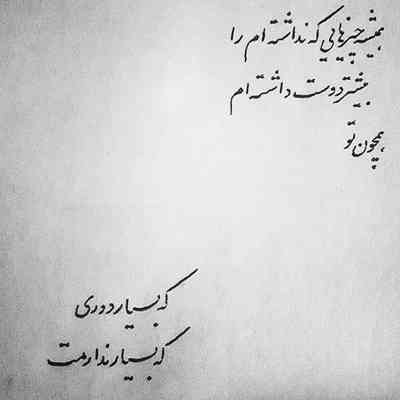 همیشه چیزهایی که نداشته ام را
بیشتر دوست داشته ام
همچون تو
که بسیار دوری
که بسیار ندارمت